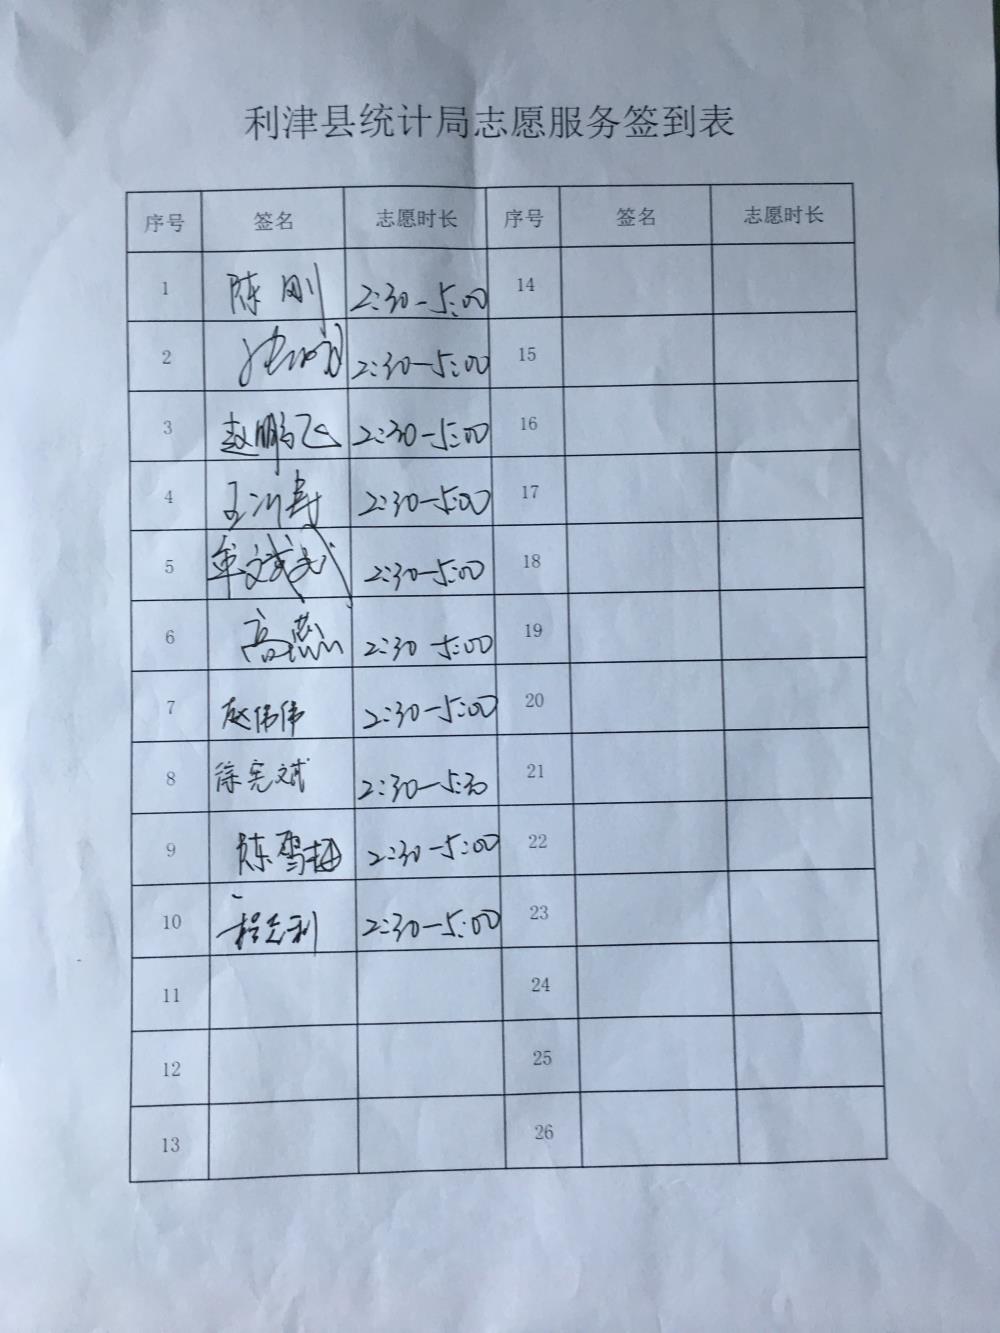 利津县统计局志愿服务签到表
序号 签名 志愿时长 序号 签名 志愿时长
1 陈刚 2:30-5:00 14
2 2:30-5:00 15
3 赵鹏飞 2:30-5:00 16
4 王 2:30-5:00 17
5 2:30-5:00 18
6 高燕 2:30-5:00 19
7 赵伟伟 2:30-5:00 20
8 徐宪斌 2:30-5:30 21
9 陈雪梅 2:30-5:00 22
10 程志利 2:30-5:00 23
11 24
12 25
13 26